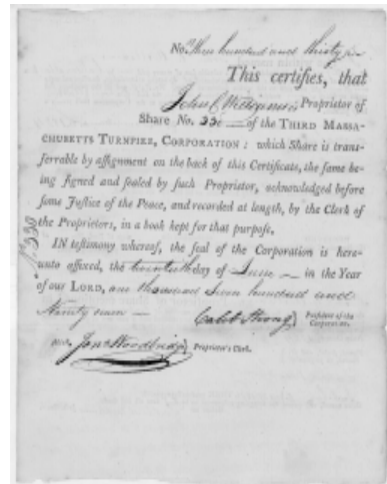 No. Three hundred and thirty
This certifies, that
John C Williams is Proprietor of
Share No. 330 — of the THIRD MASSA-
CHUSETTS TURNPIKE, CORPORATION: which Share is trans-
ferrable by assignment on the back of this Certificate, the same be-
ing signed and sealed by such Proprietor, acknowledged before
some Justice of the Peace, and recorded at length, by the Clerk of
the Proprietors, in a book kept for that purpose.
IN testimony whereof, the seal of the Corporation is here-
unto affixed, the twentieth day of June — in the Year
of our LORD, one thousand seven hundred and
Ninety nine —
Caleb Strong } President of the
Corporation.
Jona Woodbridge } Proprietor's Clerk.